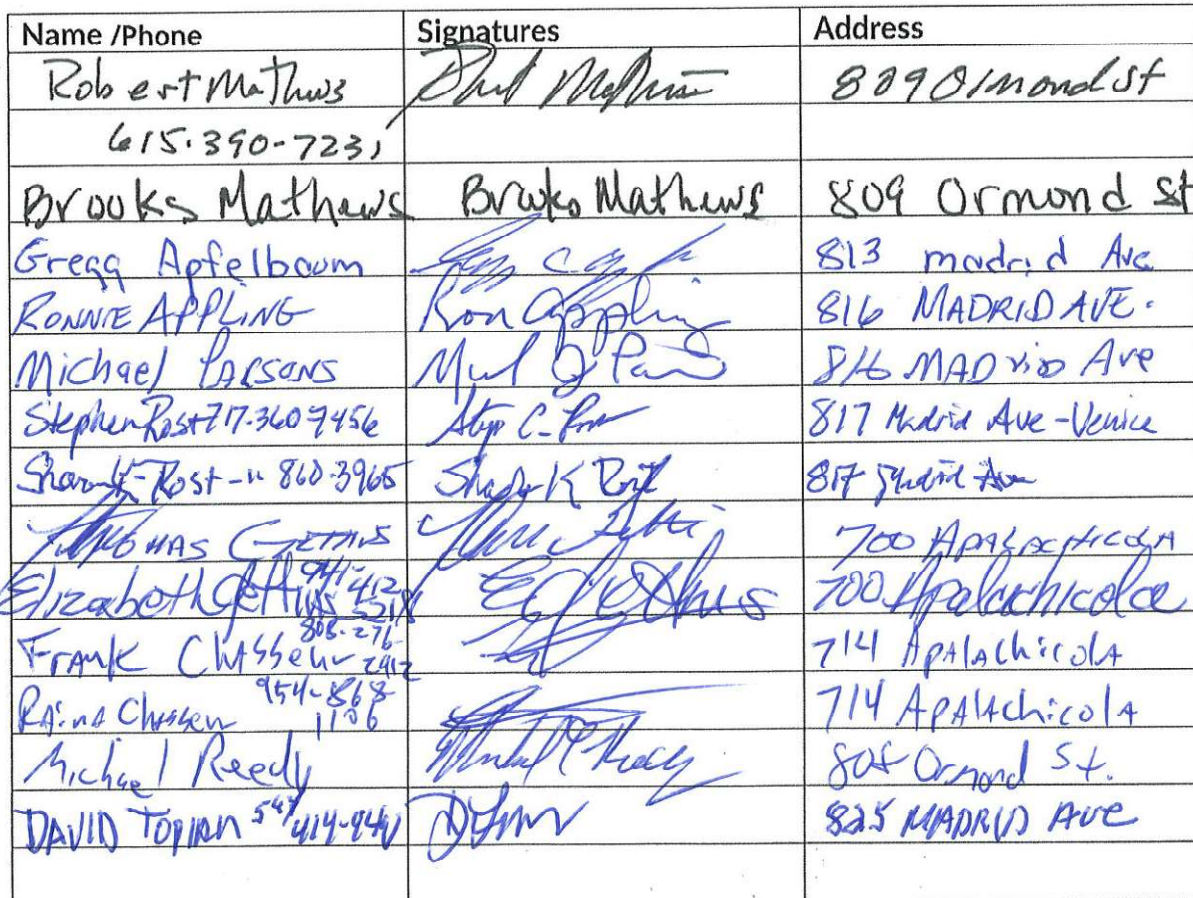 Name /Phone Signatures Address
Robert Mathws 809 Ormond St
615.390-7231
Brooks Mathews Brooks Mathews 809 Ormond St
Gregg Apfelbaum 813 madrid Ave
RONNIE APPLING Ron Appling 816 MADRID AVE.
Michael PARSONS 816 MADRID Ave
Stephen Rost 717-360-9456 817 Madrid Ave-Venice
Sharon K-Rost -" 860-3965 Sharon K Rost 817 Madrid Ave
THOMAS GETTINS 700 APALACHICOLA
Elizabeth Gettins 941-412- 700 Apalachicola
FRANK Chasseur 808-276- 2412 714 APALAChicolA
RAinA Chasseur 954-868- 1106 714 APALAChicolA
Michael Reedy Michael Reedy Ormond St.
DAVID TOPIAN 414- 825 MADRID AVE